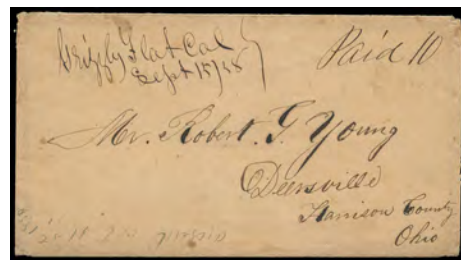 Grizzly Flat Cal
Sept 15/58
Paid 10
Mr. Robert. G. Young
Deersville
Harrison County
Ohio